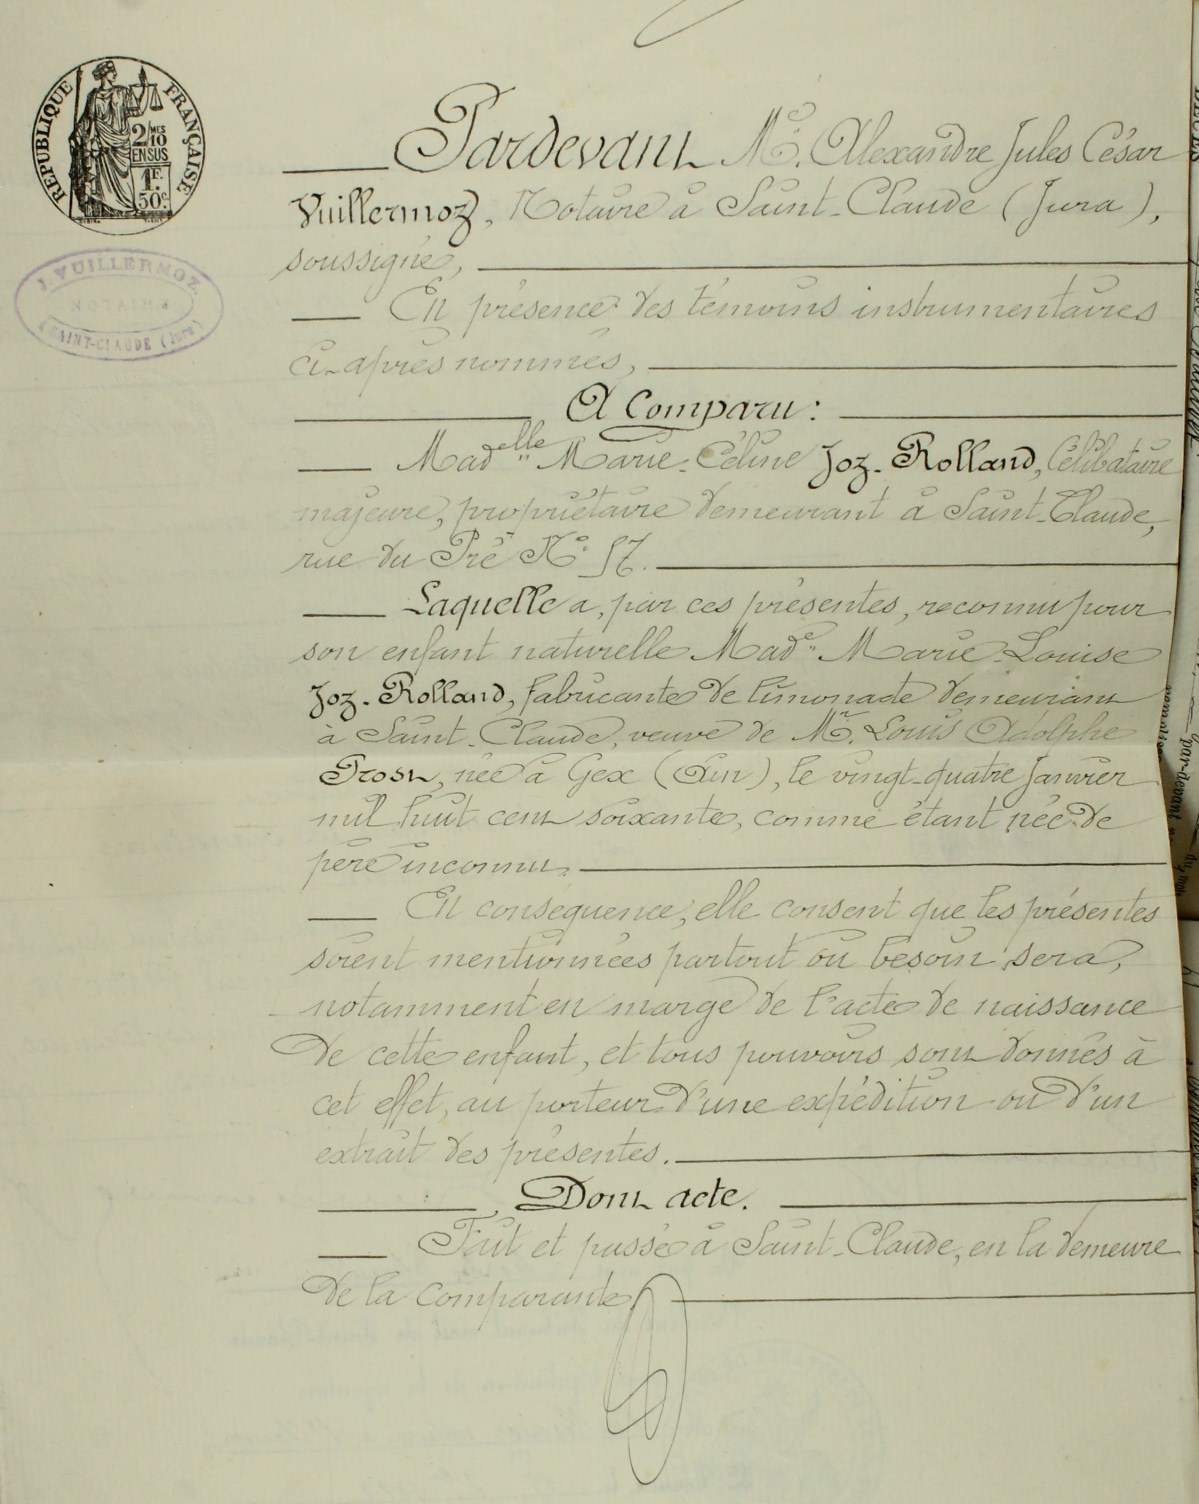 RÉPUBLIQUE FRANÇAISE
2/10 MES
EN SUS
1F.
50c.
J. VUILLERMOZ
NOTAIRE
SAINT-CLAUDE (Jura)
Pardevant Me. Alexandre Jules César
Vuillermoz, Notaire à Saint-Claude (Jura),
soussigné,
En présence des témoins instrumentaires
ci-après nommés,
A Comparu :
Madelle Marie-Céline Joz-Rolland, Célibataire
majeure, propriétaire demeurant à Saint-Claude,
rue du Pré No. 57.
Laquelle a, par ces présentes, reconnu pour
son enfant naturelle Made. Marie-Louise
Joz-Rolland, fabricante de limonade demeurant
à Saint-Claude, veuve de Mr. Louis Adolphe
Prost, née à Gex (Ain), le vingt-quatre Janvier
mil huit cent soixante, comme étant née de
père inconnu.
En conséquence, elle consent que les présentes
soient mentionnées partout où besoin sera,
notamment en marge de l'acte de naissance
de cette enfant, et tous pouvoirs sont donnés à
cet effet, au porteur d'une expédition ou d'un
extrait des présentes.
Dont acte.
Fait et passé à Saint-Claude, en la demeure
de la Comparante,